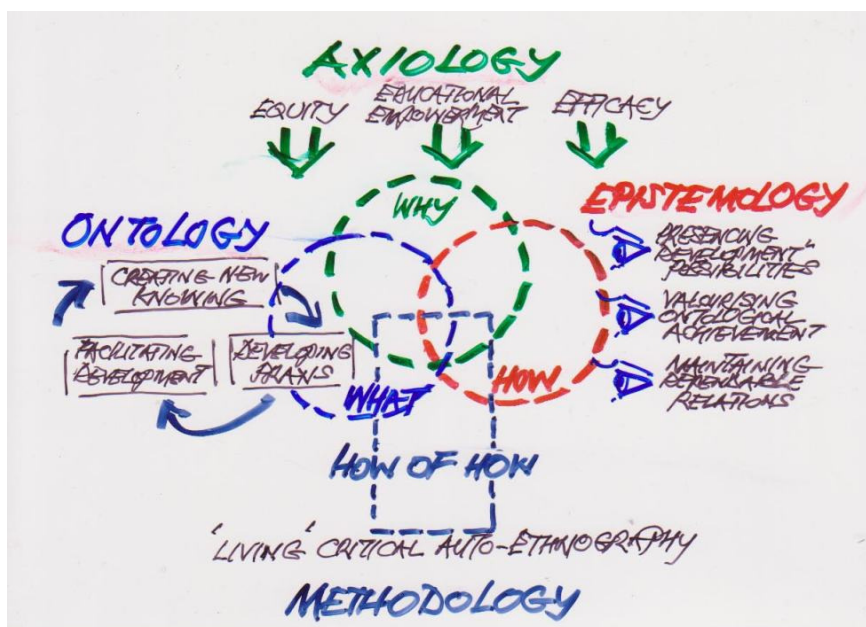 AXIOLOGY
EQUITY
EDUCATIONAL
EMPOWERMENT
EFFICACY
WHY
ONTOLOGY
CREATING NEW
KNOWING
FACILITATING
DEVELOPMENT
DEVELOPING
WHAT
EPISTEMOLOGY
PRESENCING
"DEVELOPMENT"
POSSIBILITIES
VALOURISING
ONTOLOGICAL
ACHIEVEMENT
MAINTAINING
DEPENDABLE
RELATIONS
HOW
HOW OF HOW
'LIVING' CRITICAL AUTO-ETHNOGRAPHY
METHODOLOGY